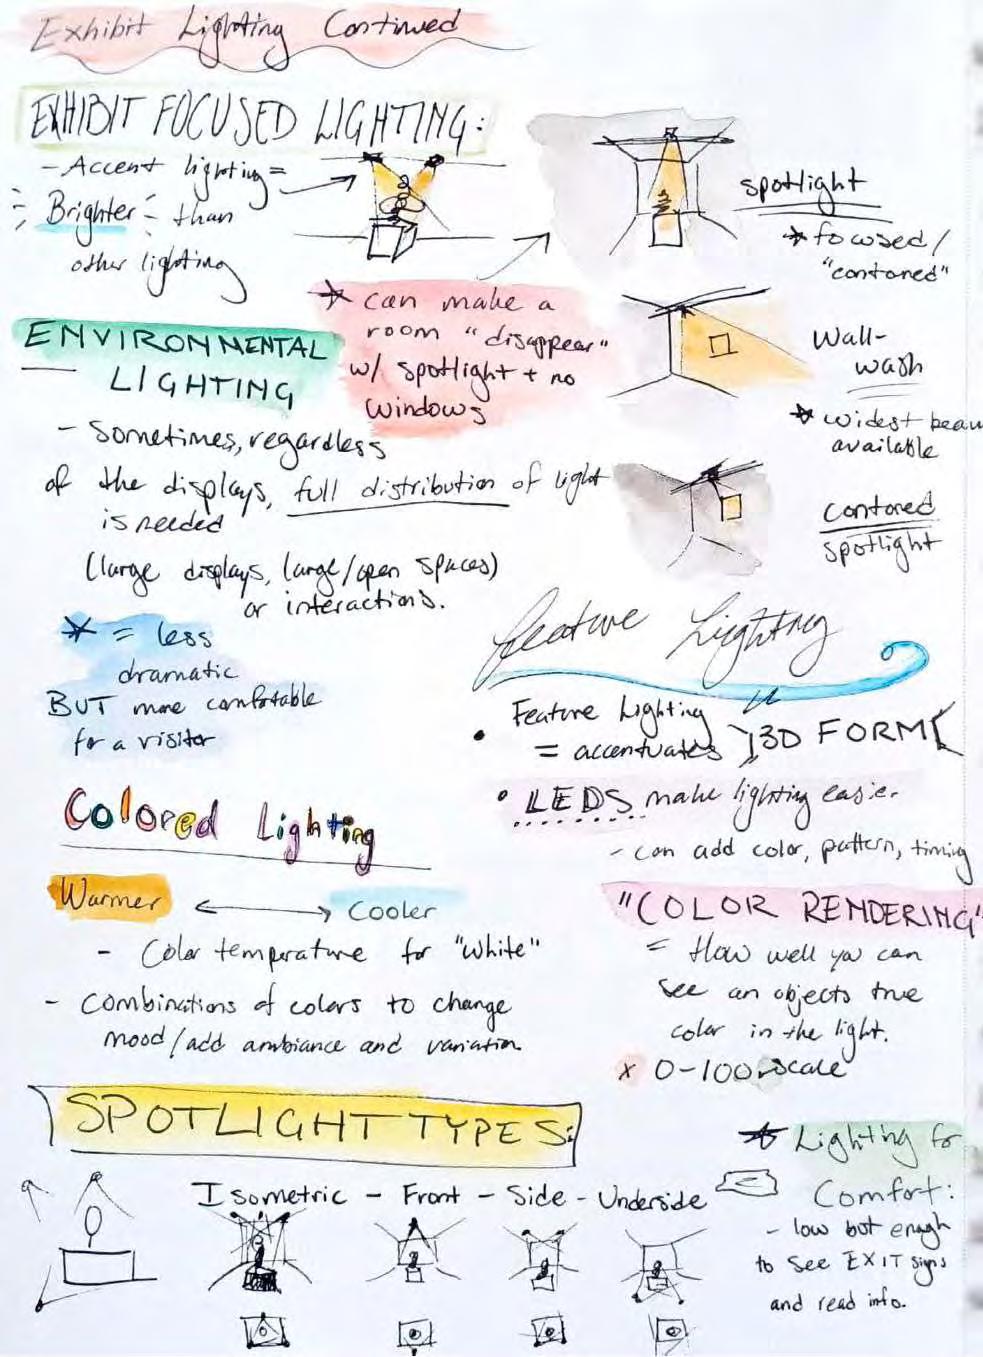 Exhibit Lighting Continued
EXHIBIT FOCUSED LIGHTING:
- Accent lighting =
Brighter than
other lighting
spotlight
* focused/
"contored"
* can make a
room "disappear"
w/ spotlight + no
windows
Wall-
wash
* widest beam
available
contored
spotlight
ENVIRONMENTAL
LIGHTING
- sometimes, regardless
of the displays, full distribution of light
is needed
(large displays, large/open spaces)
or interactions.
* = less
dramatic
BUT more comfortable
for a visitor
Feature Lighting
• Feature Lighting
= accentuates 3D FORM
• LEDS make lighting easier
- can add color, pattern, timing
Colored Lighting
Warmer
Cooler
- Color temperature for "white"
- Combinations of colors to change
mood/add ambiance and variation
"COLOR RENDERING"
= How well you can
see an objects true
color in the light.
x 0-100 scale
SPOTLIGHT TYPES:
Isometric - Front - Side - Underside
* Lighting for
Comfort:
- low but enough
to see EXIT signs
and read info.